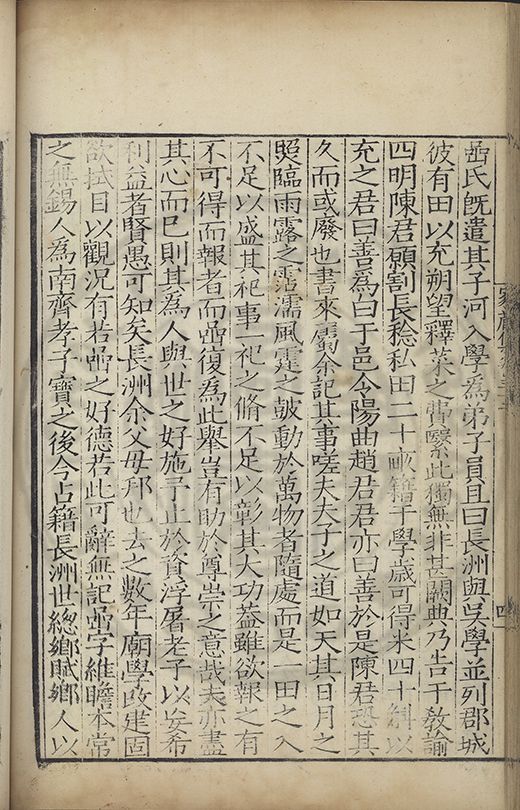 喦氏既遣其子河入學為弟子員且曰長洲與吳學並列郡城
彼有田以充朔望釋菜之費繄此獨無非甚闕典乃告于教諭
四明陳君願割長稔私田二十畝籍于學歲可得米四十斛以
充之君曰善為白于邑令陽曲趙君君亦曰善於是陳君恐其
久而或廢也書來屬余記其事嗟夫夫子之道如天其日月之
照臨雨露之霑濡風霆之鼓動於萬物者隨處而是一田之入
不足以盛其祀事一祀之脩不足以彰其大功葢雖欲報之有
不可得而報者而喦復為此舉豈有助於尊崇之意哉夫亦盡
其心而已則其為人與世之好施予止於資浮屠老子以妄希
利益者賢愚可知矣長洲余父母邦也去之數年廟學改建固
欲拭目以觀况有若喦之好德若此可辭無記喦字維瞻本常
之無錫人為南齊孝子寶之後今占籍長洲世總鄉賦鄉人以